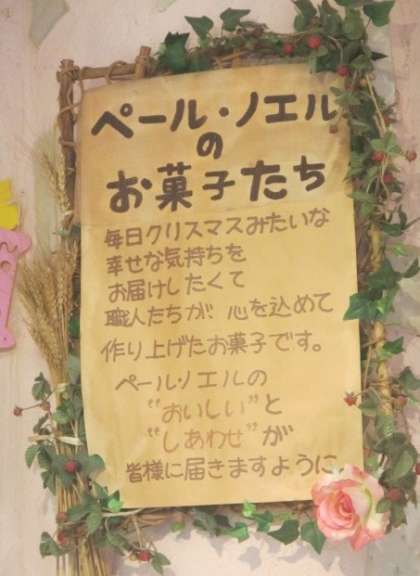 ペール・ノエル
の
お菓子たち
毎日クリスマスみたいな
幸せな気持ちを
お届けしたくて
職人たちが、心を込めて
作り上げたお菓子です。
ペール・ノエルの
“おいしい”と
“しあわせ”が
皆様に届きますように